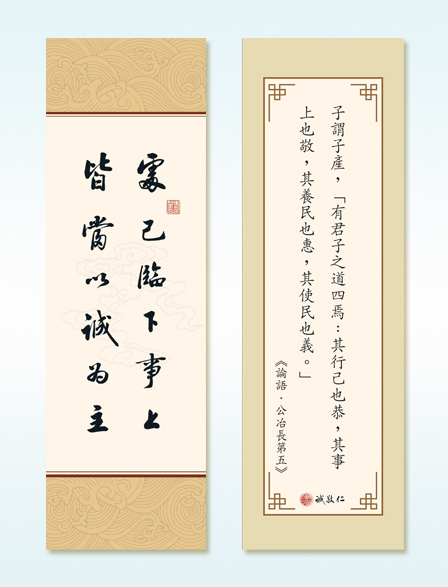 處己臨下事上
皆當以誠為主
子謂子產，「有君子之道四焉：其行己也恭，其事
上也敬，其養民也惠，其使民也義。」
《論語·公冶長第五》
誠敬仁